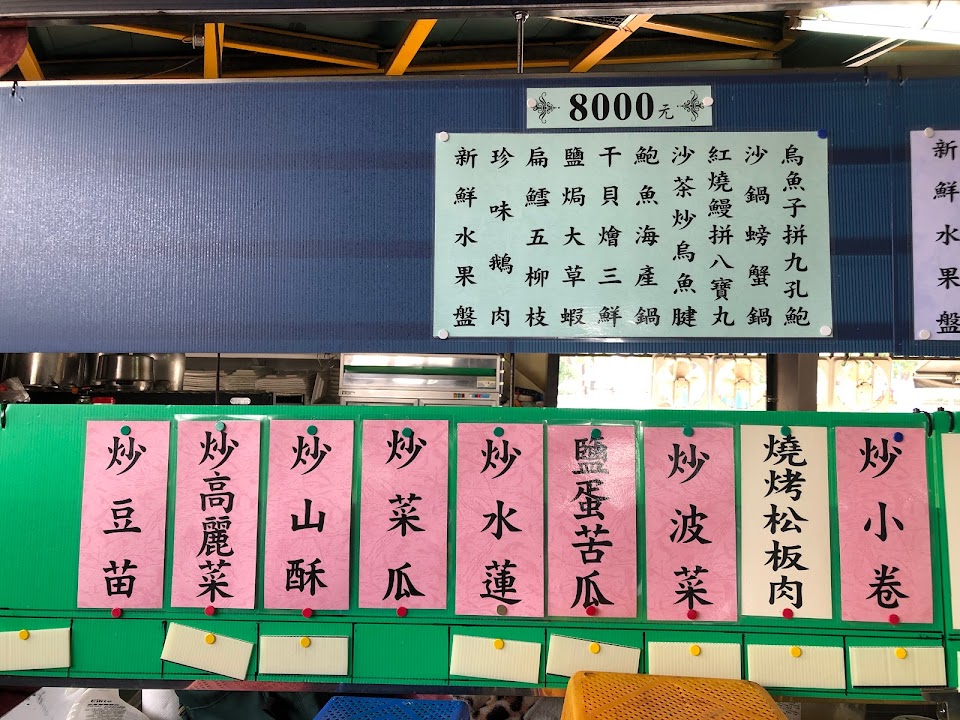 8000元
烏魚子拼九孔鮑
沙鍋螃蟹鍋
紅燒鰻拼八寶丸
沙茶炒烏魚腱
鮑魚海產鍋
干貝燴三鮮
鹽焗大草蝦
扁鱈五柳枝
珍味鵝肉
新鮮水果盤
新鮮水果盤
炒小卷
燒烤松板肉
炒波菜
鹽蛋苦瓜
炒水蓮
炒菜瓜
炒山酥
炒高麗菜
炒豆苗